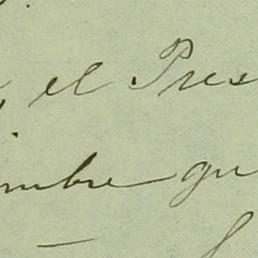 el Pres
mbre qu